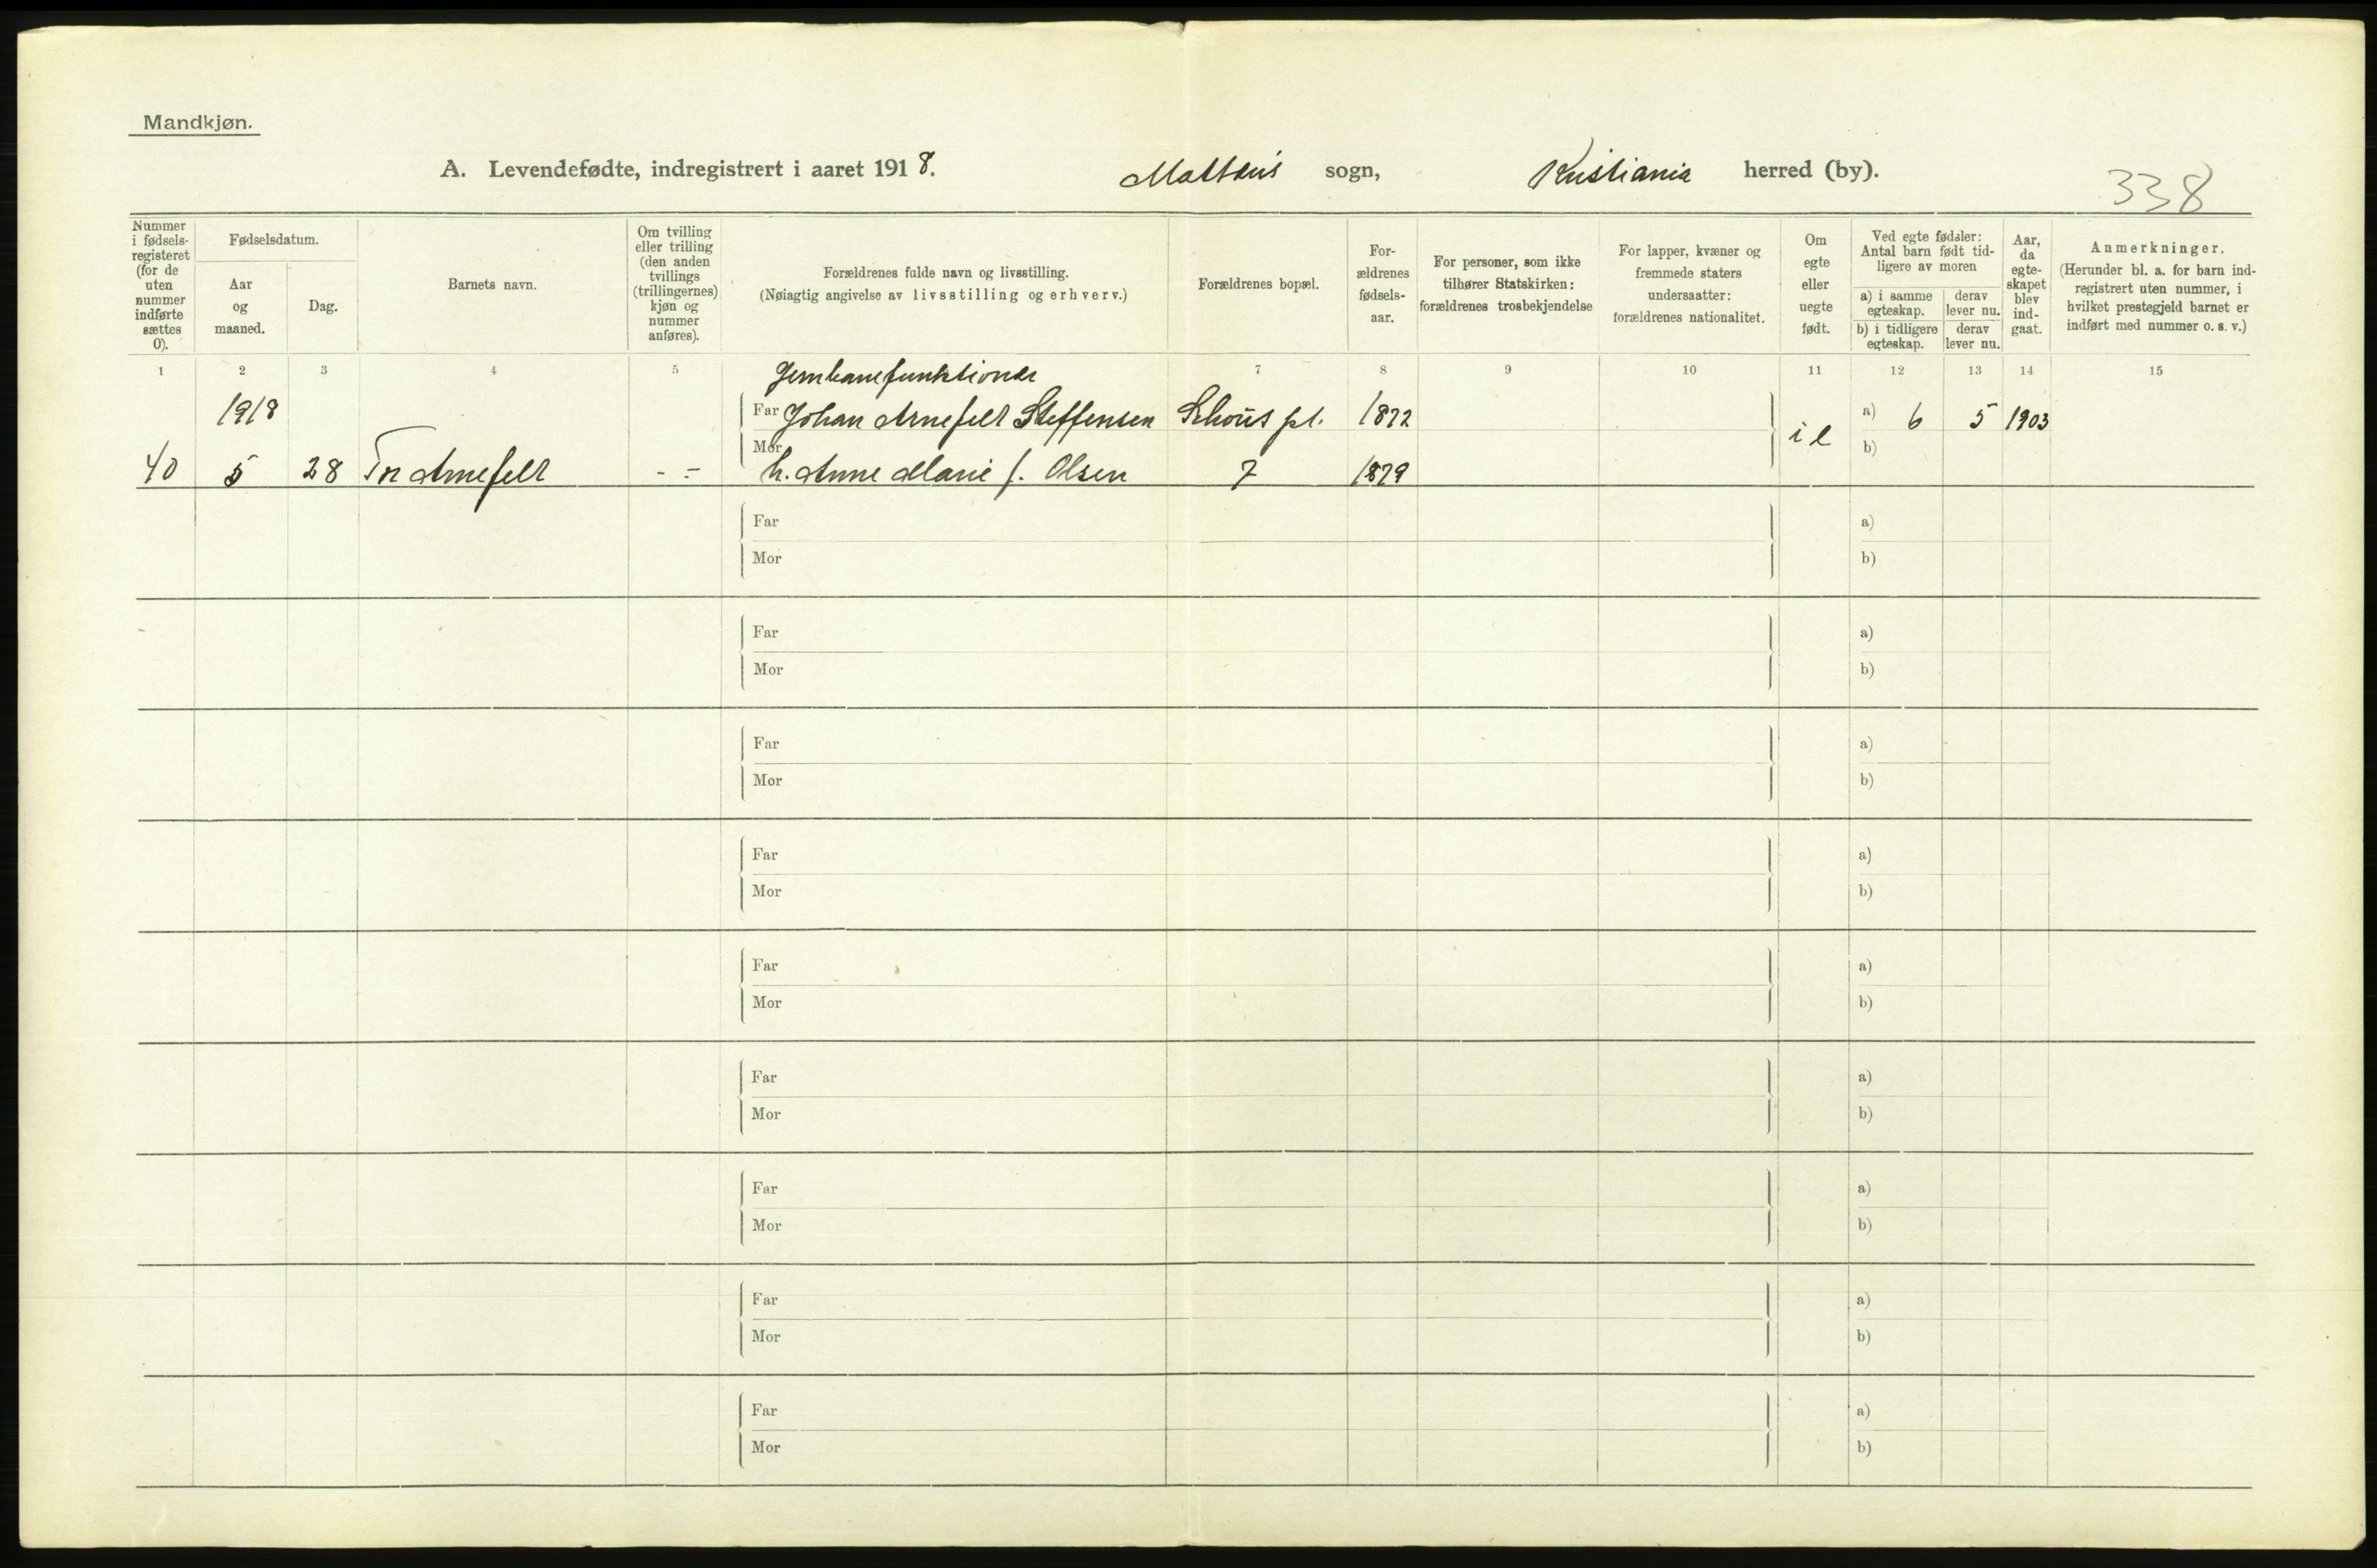 Mandkjøn.
A. Levendefødte, indregistrert i aaret 1918. Mattæus sogn, Kristiania herred (by).
338
Nummer i fødsels-registeret (for de uten nummer indførte sættes 0).
Fødselsdatum.
Aar og maaned.
Dag.
Barnets navn.
Om tvilling eller trilling (den anden tvillings (trillingernes) kjøn og nummer anføres).
Forældrenes fulde navn og livsstilling.
(Nøiagtig angivelse av livsstilling og erhverv.)
Forældrenes bopæl.
For-ældrenes fødsels-aar.
For personer, som ikke tilhører Statskirken: forældrenes trosbekjendelse
For lapper, kvæner og fremmede staters undersaatter: forældrenes nationalitet.
Om egte eller uegte født.
Ved egte fødsler: Antal barn født tid-ligere av moren
a) i samme egteskap.
derav lever nu.
b) i tidligere egteskap.
derav lever nu.
Aar, da egte-skapet blev ind-gaat.
Anmerkninger.
(Herunder bl. a. for barn ind-registrert uten nummer, i hvilket prestegjeld barnet er indført med nummer o. s. v.)
1 2 3 4 5 7 8 9 10 11 12 13 14 15
Jernbanefunktionær
1918 Far Johan Arnefelt Steffensen Schous pl. 1872 a) 6 5 1903
40 5 28 Arnefelt - - Mor h. Anne Marie f. Olsen 7 1879 b)
Far a)
Mor b)
Far a)
Mor b)
Far a)
Mor b)
Far a)
Mor b)
Far a)
Mor b)
Far a)
Mor b)
Far a)
Mor b)
Far a)
Mor b)
Far a)
Mor b)